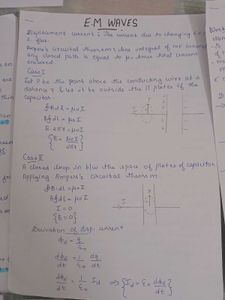 E.M WAVES
Displacement current : The current due to changing E.F
& flux.
Ampere's Circuital theorem : line integral of mf around
any closed path is equal to μ₀ times total current
enclosed.
Case I
Let P be the point above the conducting wire at a
distance r & let it be outside the || plates of the
capacitor.
∮B·dl = μ₀I
B∮dl = μ₀I
B·2πr = μ₀I
{B = μ₀I / 2πr}
Case II
A closed loop in b/w the space of plates of capacitor
Applying Ampere's circuital theorem
∮B·dl = μ₀I
B∮dl = μ₀I
I = 0
{B = 0}
I
Derivation of disp. current
Φ_E = q/ε₀
dΦ_E/dt = 1/ε₀ dq/dt
dΦ_E/dt = 1/ε₀ I_d ⇒ {I_d = ε₀ dΦ_E/dt}